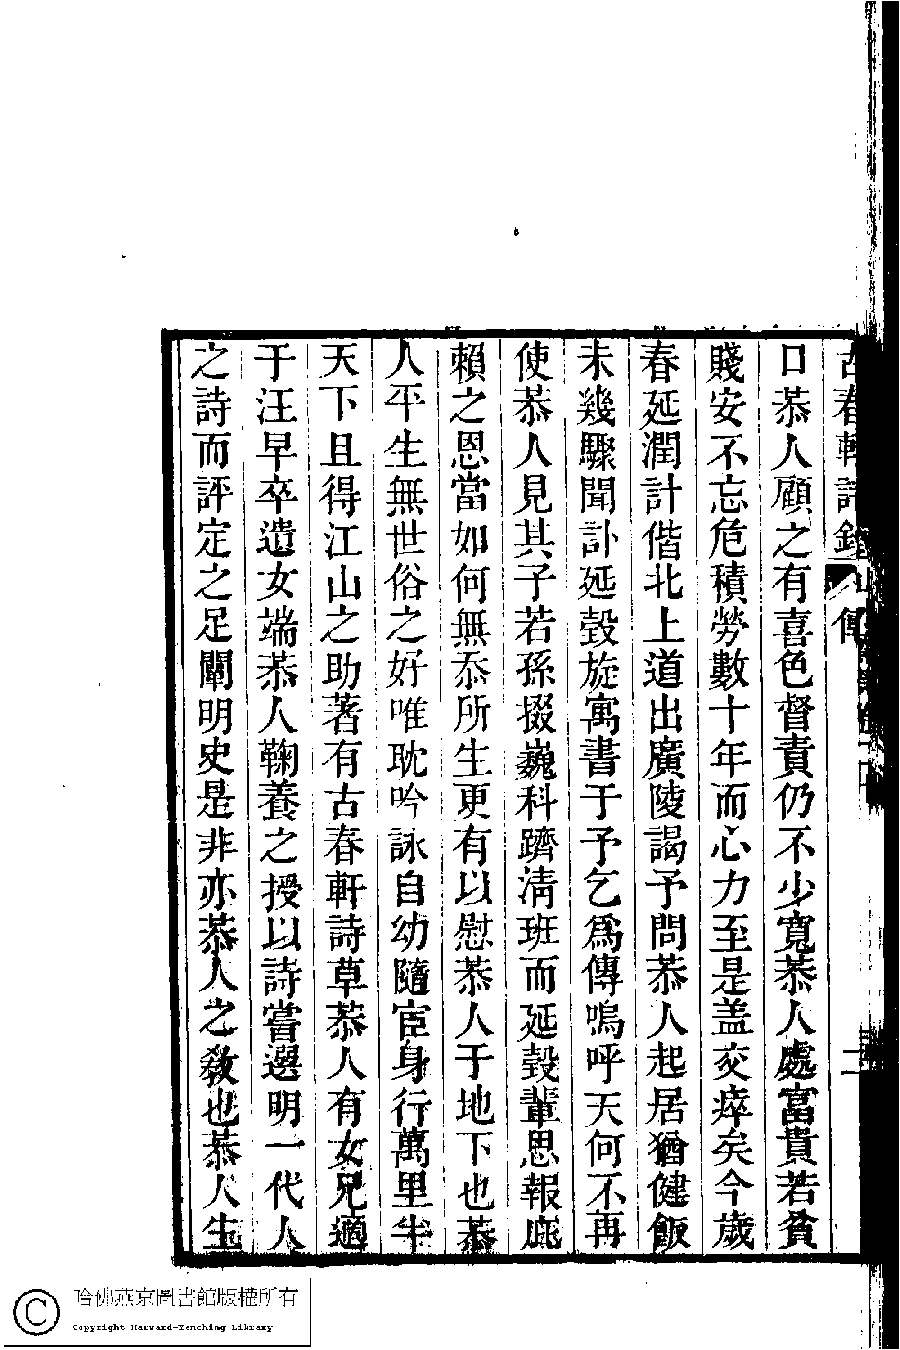 古春軒詩鈔 傳 二
口恭人顧之有喜色督責仍不少寬恭人處富貴若貧
賤安不忘危積勞數十年而心力至是盖交瘁矣今歲
春延潤計偕北上道出廣陵謁予問恭人起居猶健飯
未幾驟聞訃延瑴旋寓書于予乞爲傳嗚呼天何不再
使恭人見其子若孫掇巍科躋淸班而延瑴輩思報庇
賴之恩當如何無忝所生更有以慰恭人于地下也恭
人平生無世俗之好唯耽吟詠自幼隨宦身行萬里半
天下且得江山之助著有古春軒詩草恭人有女兄適
于汪早卒遺女端恭人鞠養之授以詩嘗選明一代人
之詩而評定之足闡明史是非亦恭人之敎也恭人生
哈佛燕京圖書館版權所有
Copyright Harvard-Yenching Library